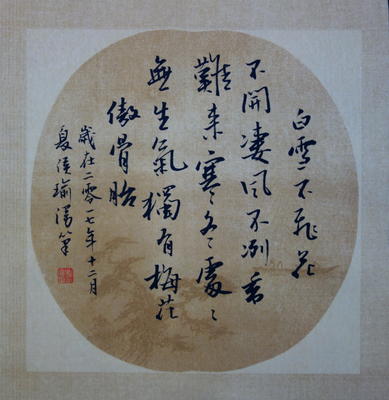 白雪不飛花
不開凄風不冽香
難来寒冬處々
無生氣獨有梅花
傲骨胎
歲在二零一七年十二月
夏侯瑜筆